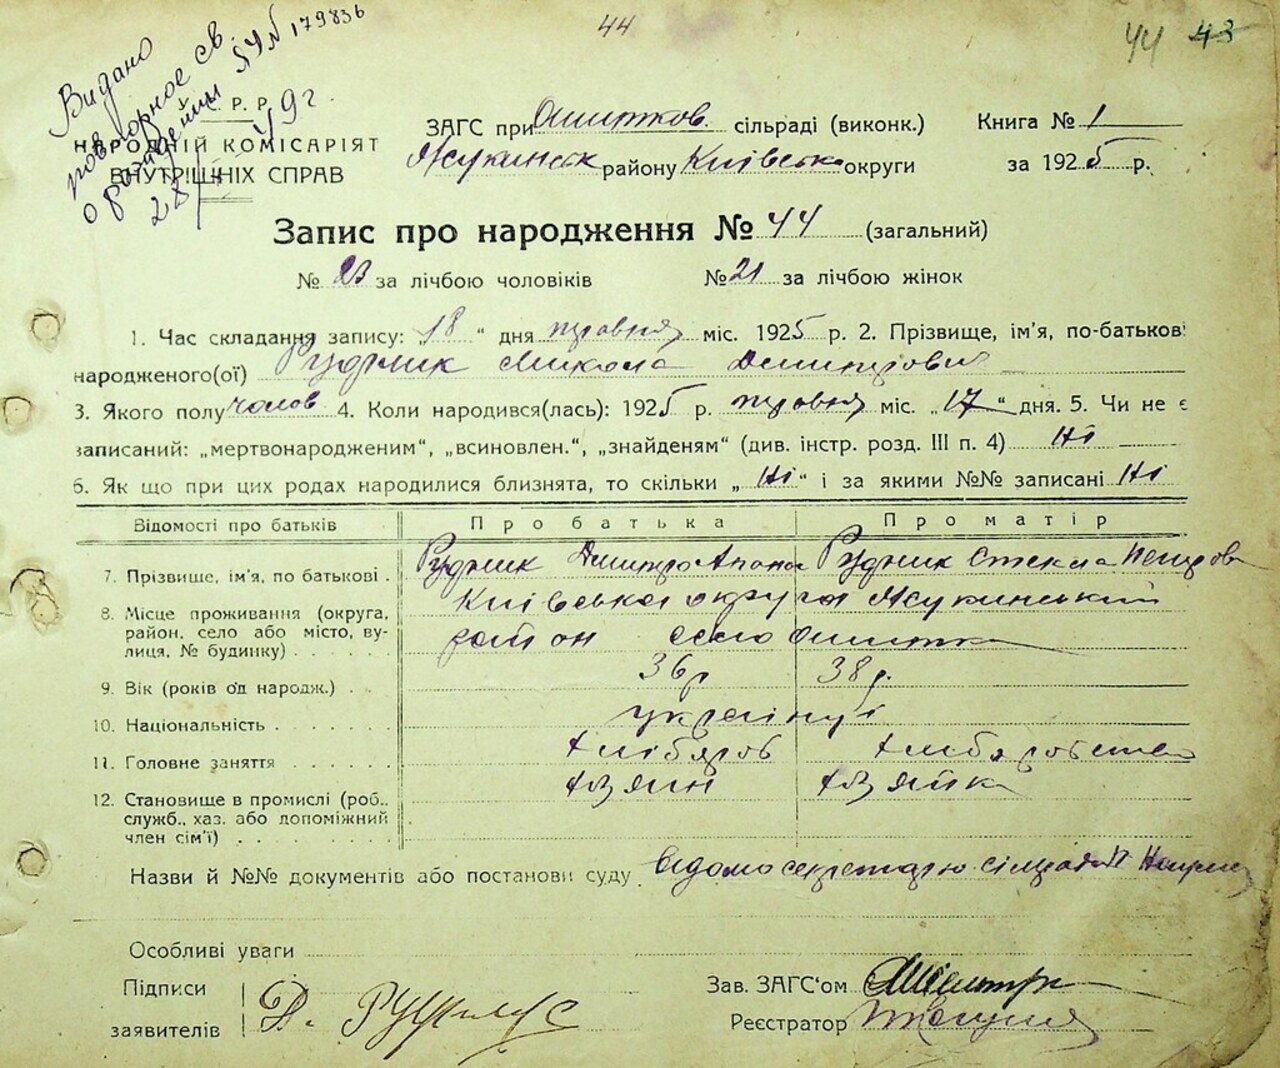 44
44 43
Видано
повторное св
о рождении ЯЧ № 179836
28/ 49 г
У. С. Р. Р.
НАРОДНІЙ КОМІСАРІЯТ
ВНУТРІШНІХ СПРАВ
ЗАГС при Ошитков. сільраді (виконк.) Книга № 1
Жукинськ району Київськ округи за 1925 р.
Запис про народження № 44 (загальний)
№ 23 за лічбою чоловіків № 21 за лічбою жінок
1. Час складання запису: „18“ дня травня міс. 1925 р. 2. Прізвище, ім'я, по-батькові
народженого(ої) Рудник Микола Дмитрович
3. Якого полу чолов 4. Коли народився(лась): 1925 р. травня міс. „17“ дня. 5. Чи не є
записаний: „мертвонародженим“, „всиновлен.“, „знайденям“ (див. інстр. розд. III п. 4) Ні
6. Як що при цих родах народилися близнята, то скільки „Ні“ і за якими №№ записані Ні
Відомості про батьків Про батька Про матір
7. Прізвище, ім'я, по батькові . Рудник Дмитро Апана Рудник Стекла Петров
8. Місце проживання (округа, Київська округа Жукинський
район, село або місто, ву- район село Ошитки
лиця, № будинку)
9. Вік (років од народж.) 36 р 38 р.
10. Національність українці
11. Головне заняття хлібороб хліборобство
12. Становище в промислі (роб., хазяїн хазяйка
служб., хаз. або допоміжний
член сім'ї)
Назви й №№ документів або постанови суду Відомо секретарю сілради
Особливі уваги
Підписи
заявителів Д. Рудник
Зав. ЗАГС'ом
Реєстратор